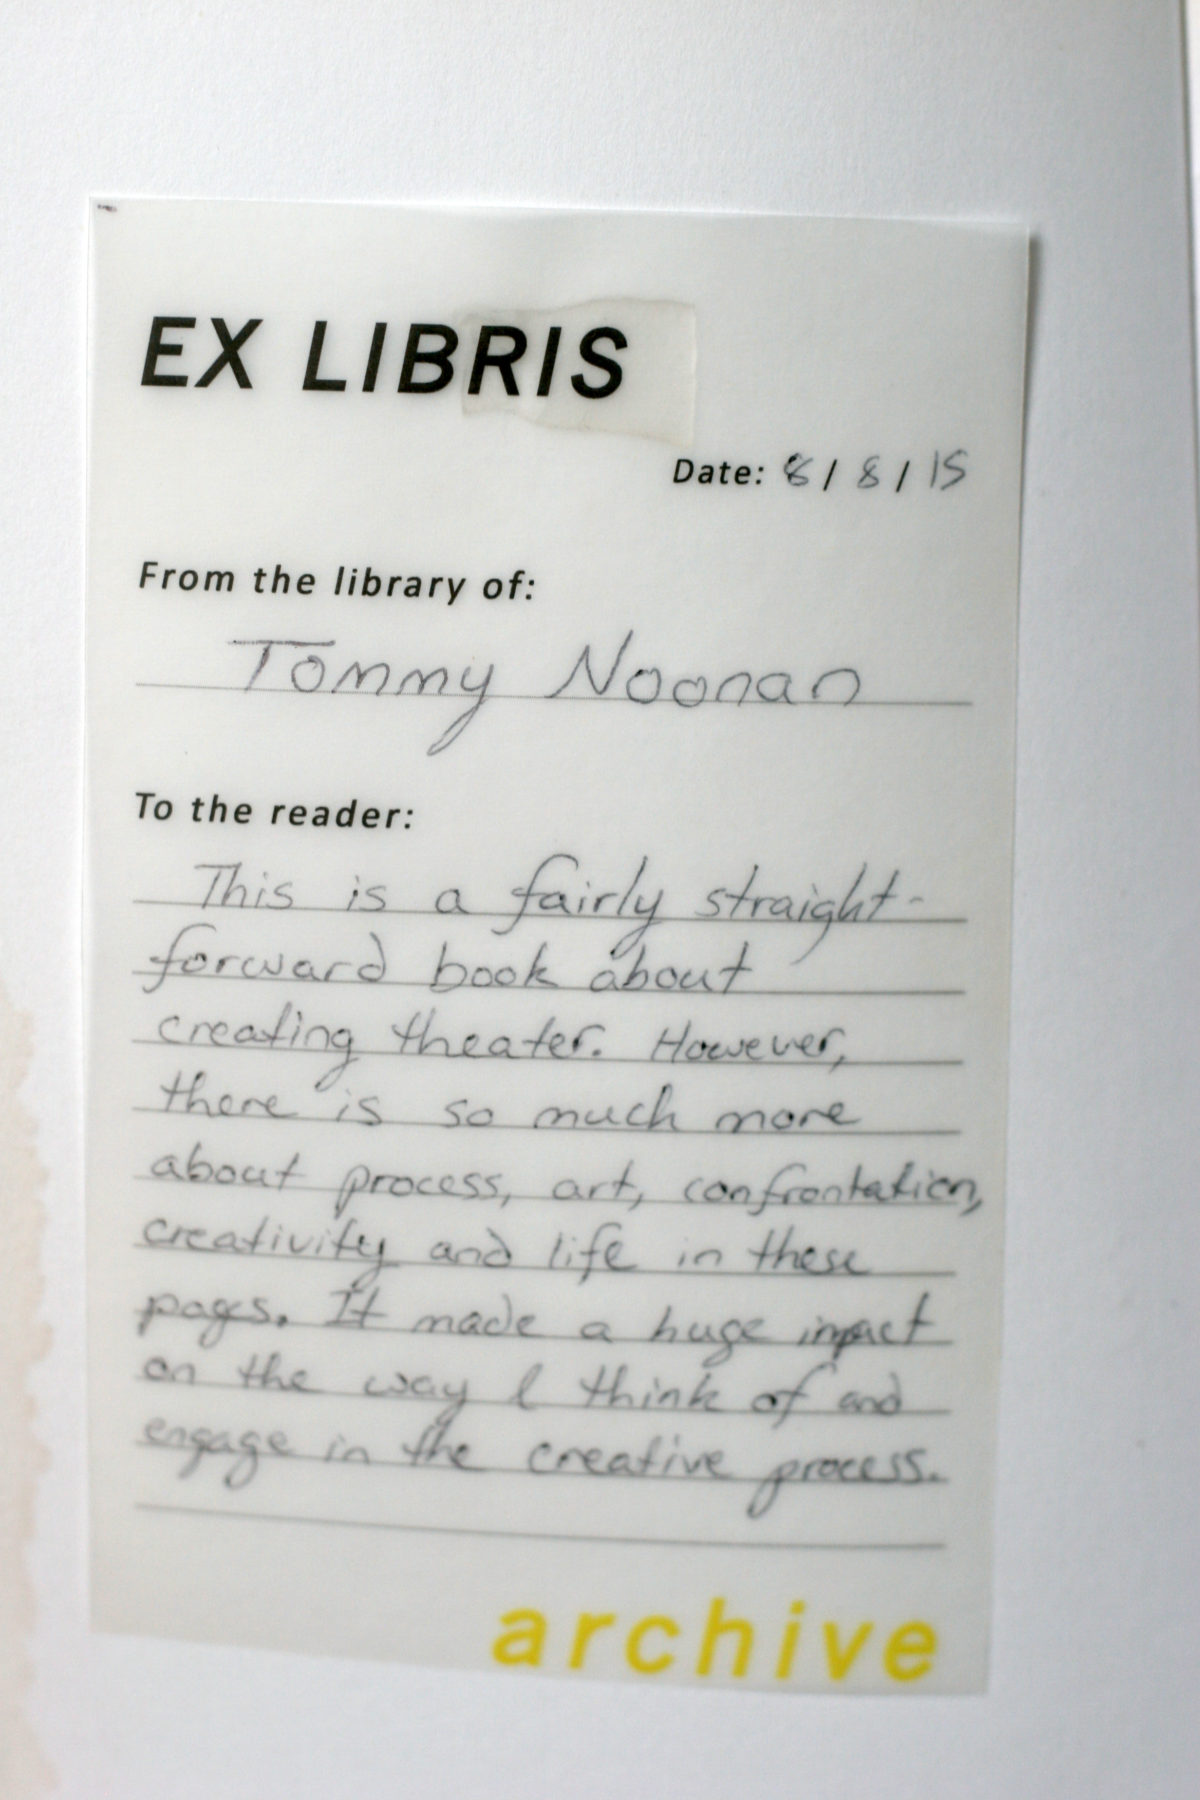 EX LIBRIS
Date: 8/8/15
From the library of:
Tommy Noonan
To the reader:
This is a fairly straight-
forward book about
creating theater. However,
there is so much more
about process, art, confrontation,
creativity and life in these
pages. It made a huge impact
on the way I think of and
engage in the creative process.
archive